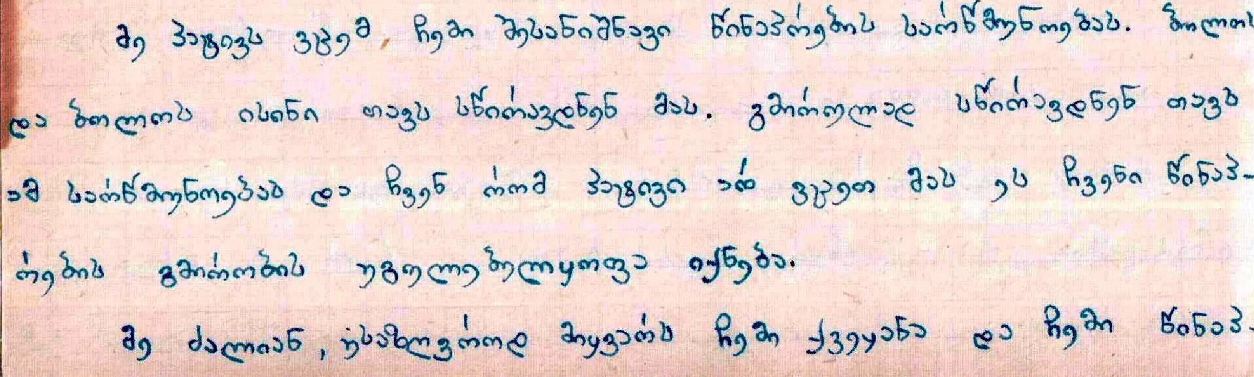 მე პატივს ვცემ ჩემი შესანიშნავი წინაპრების სარწმუნოებას. ბოლო
და ბოლოს ისინი თავს სწირავდნენ მას. გმირულად სწირავდნენ თავს
ამ სარწმუნოებას და ჩვენ რომ პატივი არ ვცეთ მას ეს ჩვენი წინაპ-
რების გმირობის უგულებელყოფა იქნება.
მე ძალიან, უსაზღვროდ მიყვარს ჩემი ქვეყანა და ჩემი წინაპ-